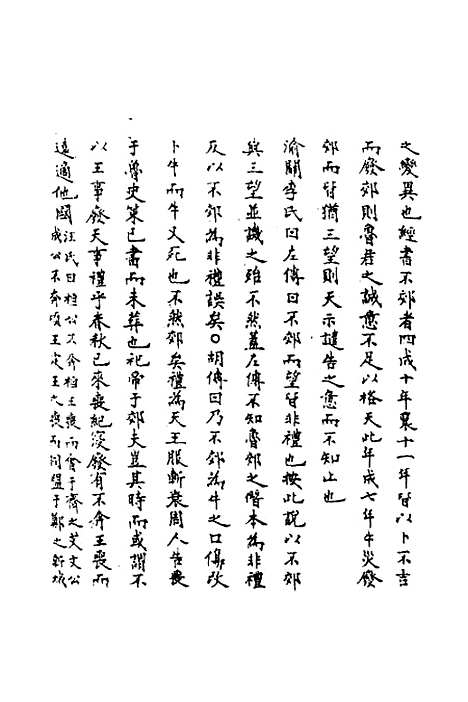 之變異也經書不郊者四成十年襄十一年皆以卜不吉
而廢郊則魯君之誠意不足以格天此年成七年牛災廢
郊而皆猶三望則天示譴告之意而不知止也
渝關李氏曰左傳曰不郊而望皆非禮也按此說以不郊
與三望並譏之殆不然蓋左傳不知魯郊之僭本為非禮
反以不郊為非禮誤矣○胡傳曰乃不郊為牛之口傷改
卜牛而牛又死也不然郊矣禮為天王服斬衰周人告喪
于魯史策已書而未葬也祀帝于郊夫豈其時而或謂不
以王事廢天事禮乎春秋已來喪紀寖廢有不奔王喪而
遠適他國汪氏曰桓公不奔桓王喪而會于齊之艾文公
成公不奔頃王定王之喪而同盟于鄭之新城